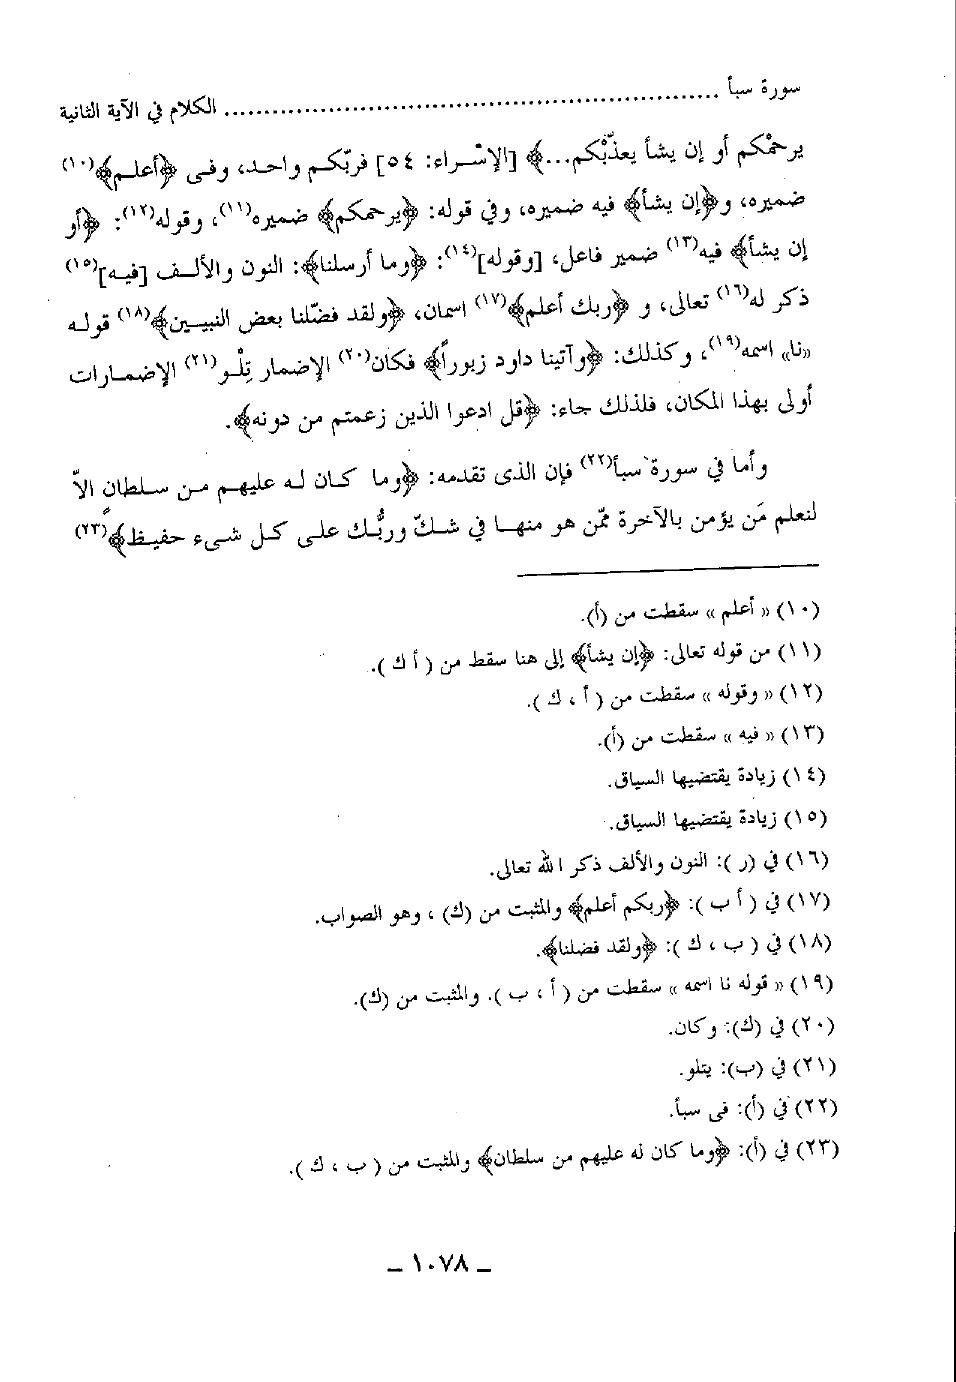 سورة سبأ ................................................................ الكلام في الآية الثانية
يرحمْكم أو إن يشأ يعذّبْكم...﴾ [الإسْراء: ٥٤] فربّكم واحد، وفى ﴿أعلم﴾(١٠)
ضميره، و﴿إن يشأ﴾ فيه ضميره، وفي قوله: ﴿يرحمكم﴾ ضميره(١١)، وقوله(١٢): ﴿أو
إن يشأ﴾ فيه(١٣) ضمير فاعل، [وقوله](١٤): ﴿وما أرسلنا﴾: النون والألف [فيه](١٥)
ذكر له(١٦) تعالى، و ﴿ربك أعلم﴾(١٧) اسمان، ﴿ولقد فضّلنا بعض النبيين﴾(١٨) قوله
«نا» اسمه(١٩)، وكذلك: ﴿وآتينا داود زبوراً﴾ فكان(٢٠) الإضمار تِلْو(٢١) الإضمارات
أولى بهذا المكان، فلذلك جاء: ﴿قل ادعوا الذين زعمتم من دونه﴾.
وأما في سورة سبأ(٢٢) فإن الذى تقدمه: ﴿وما كان له عليهم من سلطانٍ الاّ
لنعلم مَن يؤمن بالآخرة ممّن هو منها في شكّ وربُّك على كل شىء حفيظ﴾(٢٣)
(١٠) « أعلم » سقطت من (أ).
(١١) من قوله تعالى: ﴿إن يشأ﴾ إلى هنا سقط من ( أ ك ).
(١٢) « وقوله » سقطت من ( أ ، ك ).
(١٣) « فيه » سقطت من (أ).
(١٤) زيادة يقتضيها السياق.
(١٥) زيادة يقتضيها السياق.
(١٦) في ( ر ): النون والألف ذكر الله تعالى.
(١٧) في ( أ ب ): ﴿ربكم أعلم﴾ والمثبت من (ك) ، وهو الصواب.
(١٨) في ( ب ، ك ): ﴿ولقد فضلنا﴾.
(١٩) « قوله نا اسمه » سقطت من ( أ ، ب ). والمثبت من (ك).
(٢٠) في (ك): وكان.
(٢١) في (ب): يتلو.
(٢٢) في (أ): فى سبأ.
(٢٣) في (أ): ﴿وما كان له عليهم من سلطان﴾ والمثبت من ( ب ، ك ).
ـ ١٠٧٨ ـ